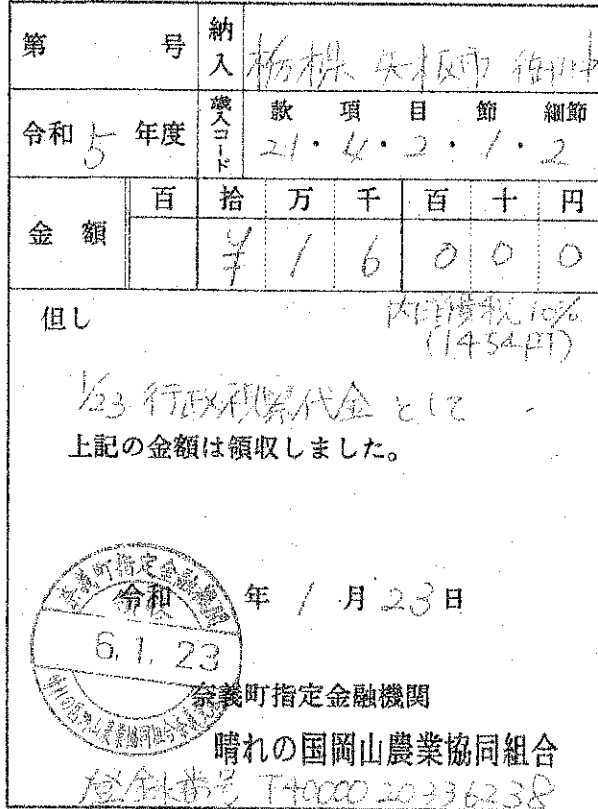 第 号 納入 栃木県 矢板市 御中
令和 5 年度 歳入コード 款 項 目 節 細節
21・4・2・1・2
金額 百 拾 万 千 百 十 円
¥ 1 6 0 0 0
但し 内消費税10%
(1454円)
1/23 行政視察代金 として
上記の金額は領収しました。
奈義町指定金融機関
領収
6.1.23
晴れの国岡山農業協同組合
令和 年 1 月 23 日
奈義町指定金融機関
晴れの国岡山農業協同組合
登録番号 T4000020336238